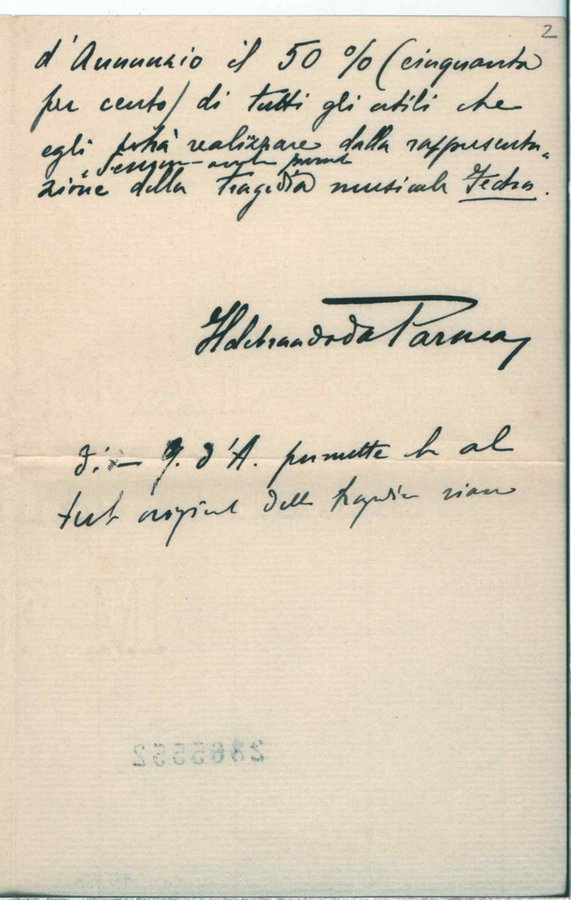 2
d'Annunzio il 50 % (cinquanta
per cento) di tutti gli utili che
egli potrà realizzare dalla rappresenta-
zione della tragedia musicale Fedra.
Ildebrando da Parma
G. d'A. permette che al
testo originale della tragedia siano
2865552